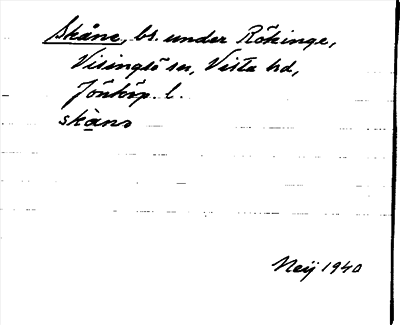 Skåne, bs. under Rökinge,
Visingsö sn, Vista hd,
Jönköp. l.
skånɔ
Neij 1940